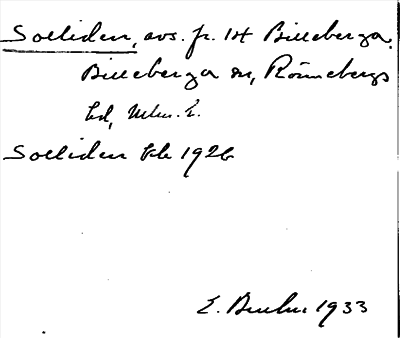 Solliden, avs. fr. 1H Billeberga.
Billeberga sn, Rönnebergs
hd, Mlm. l.
Solliden Ek 1926
E. 1933